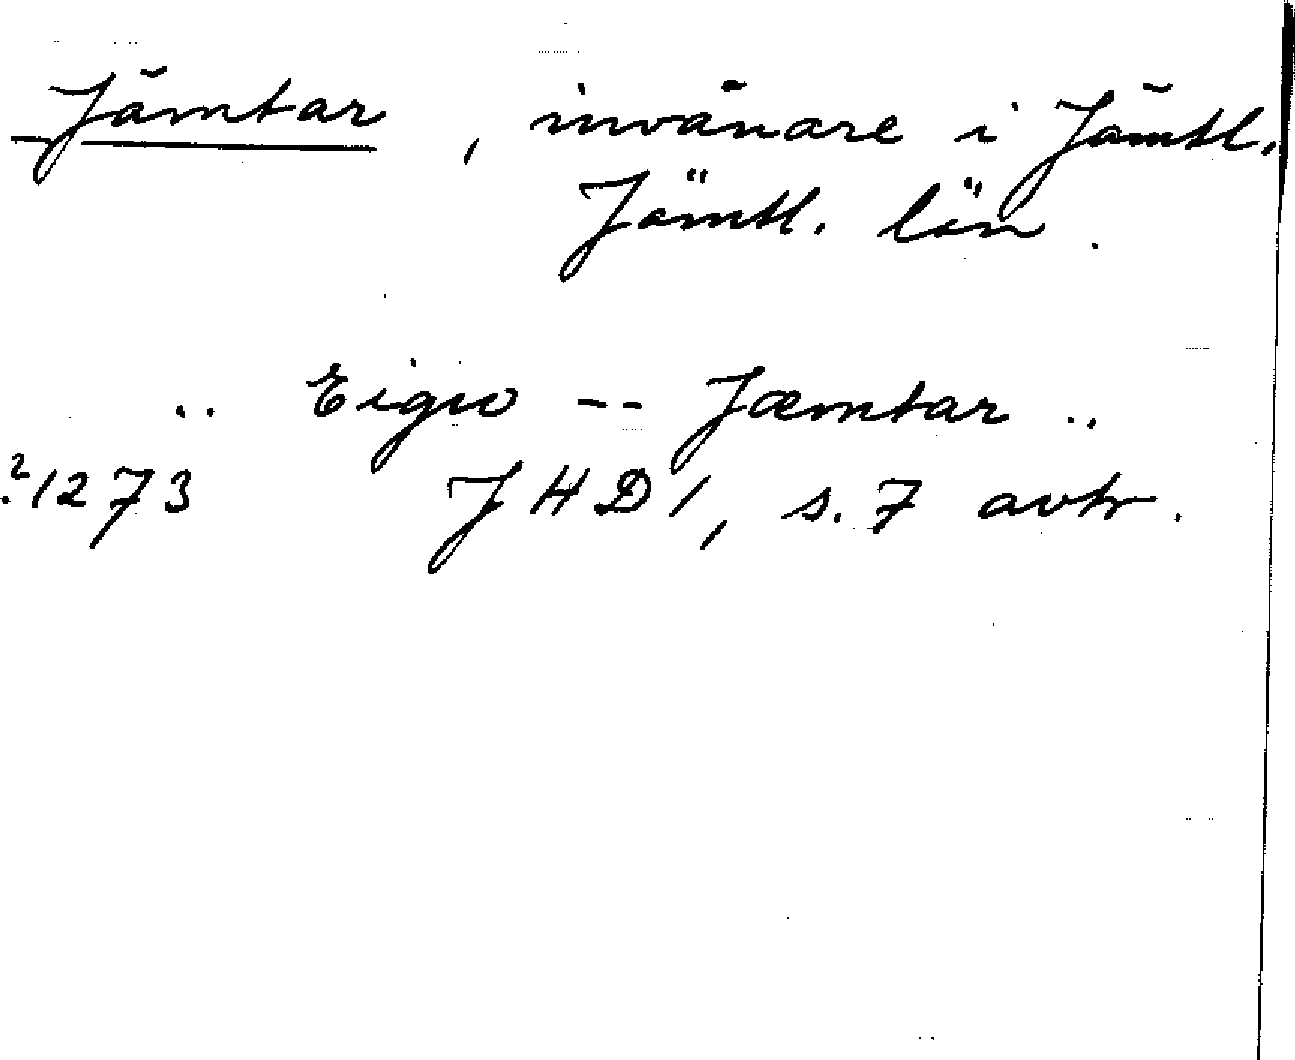 Jämtar, invånare i Jämtl.
Jämtl. län.
.. Eigw -- Jæmtar ..
?1273 JHD 1, s. 7 avtr.